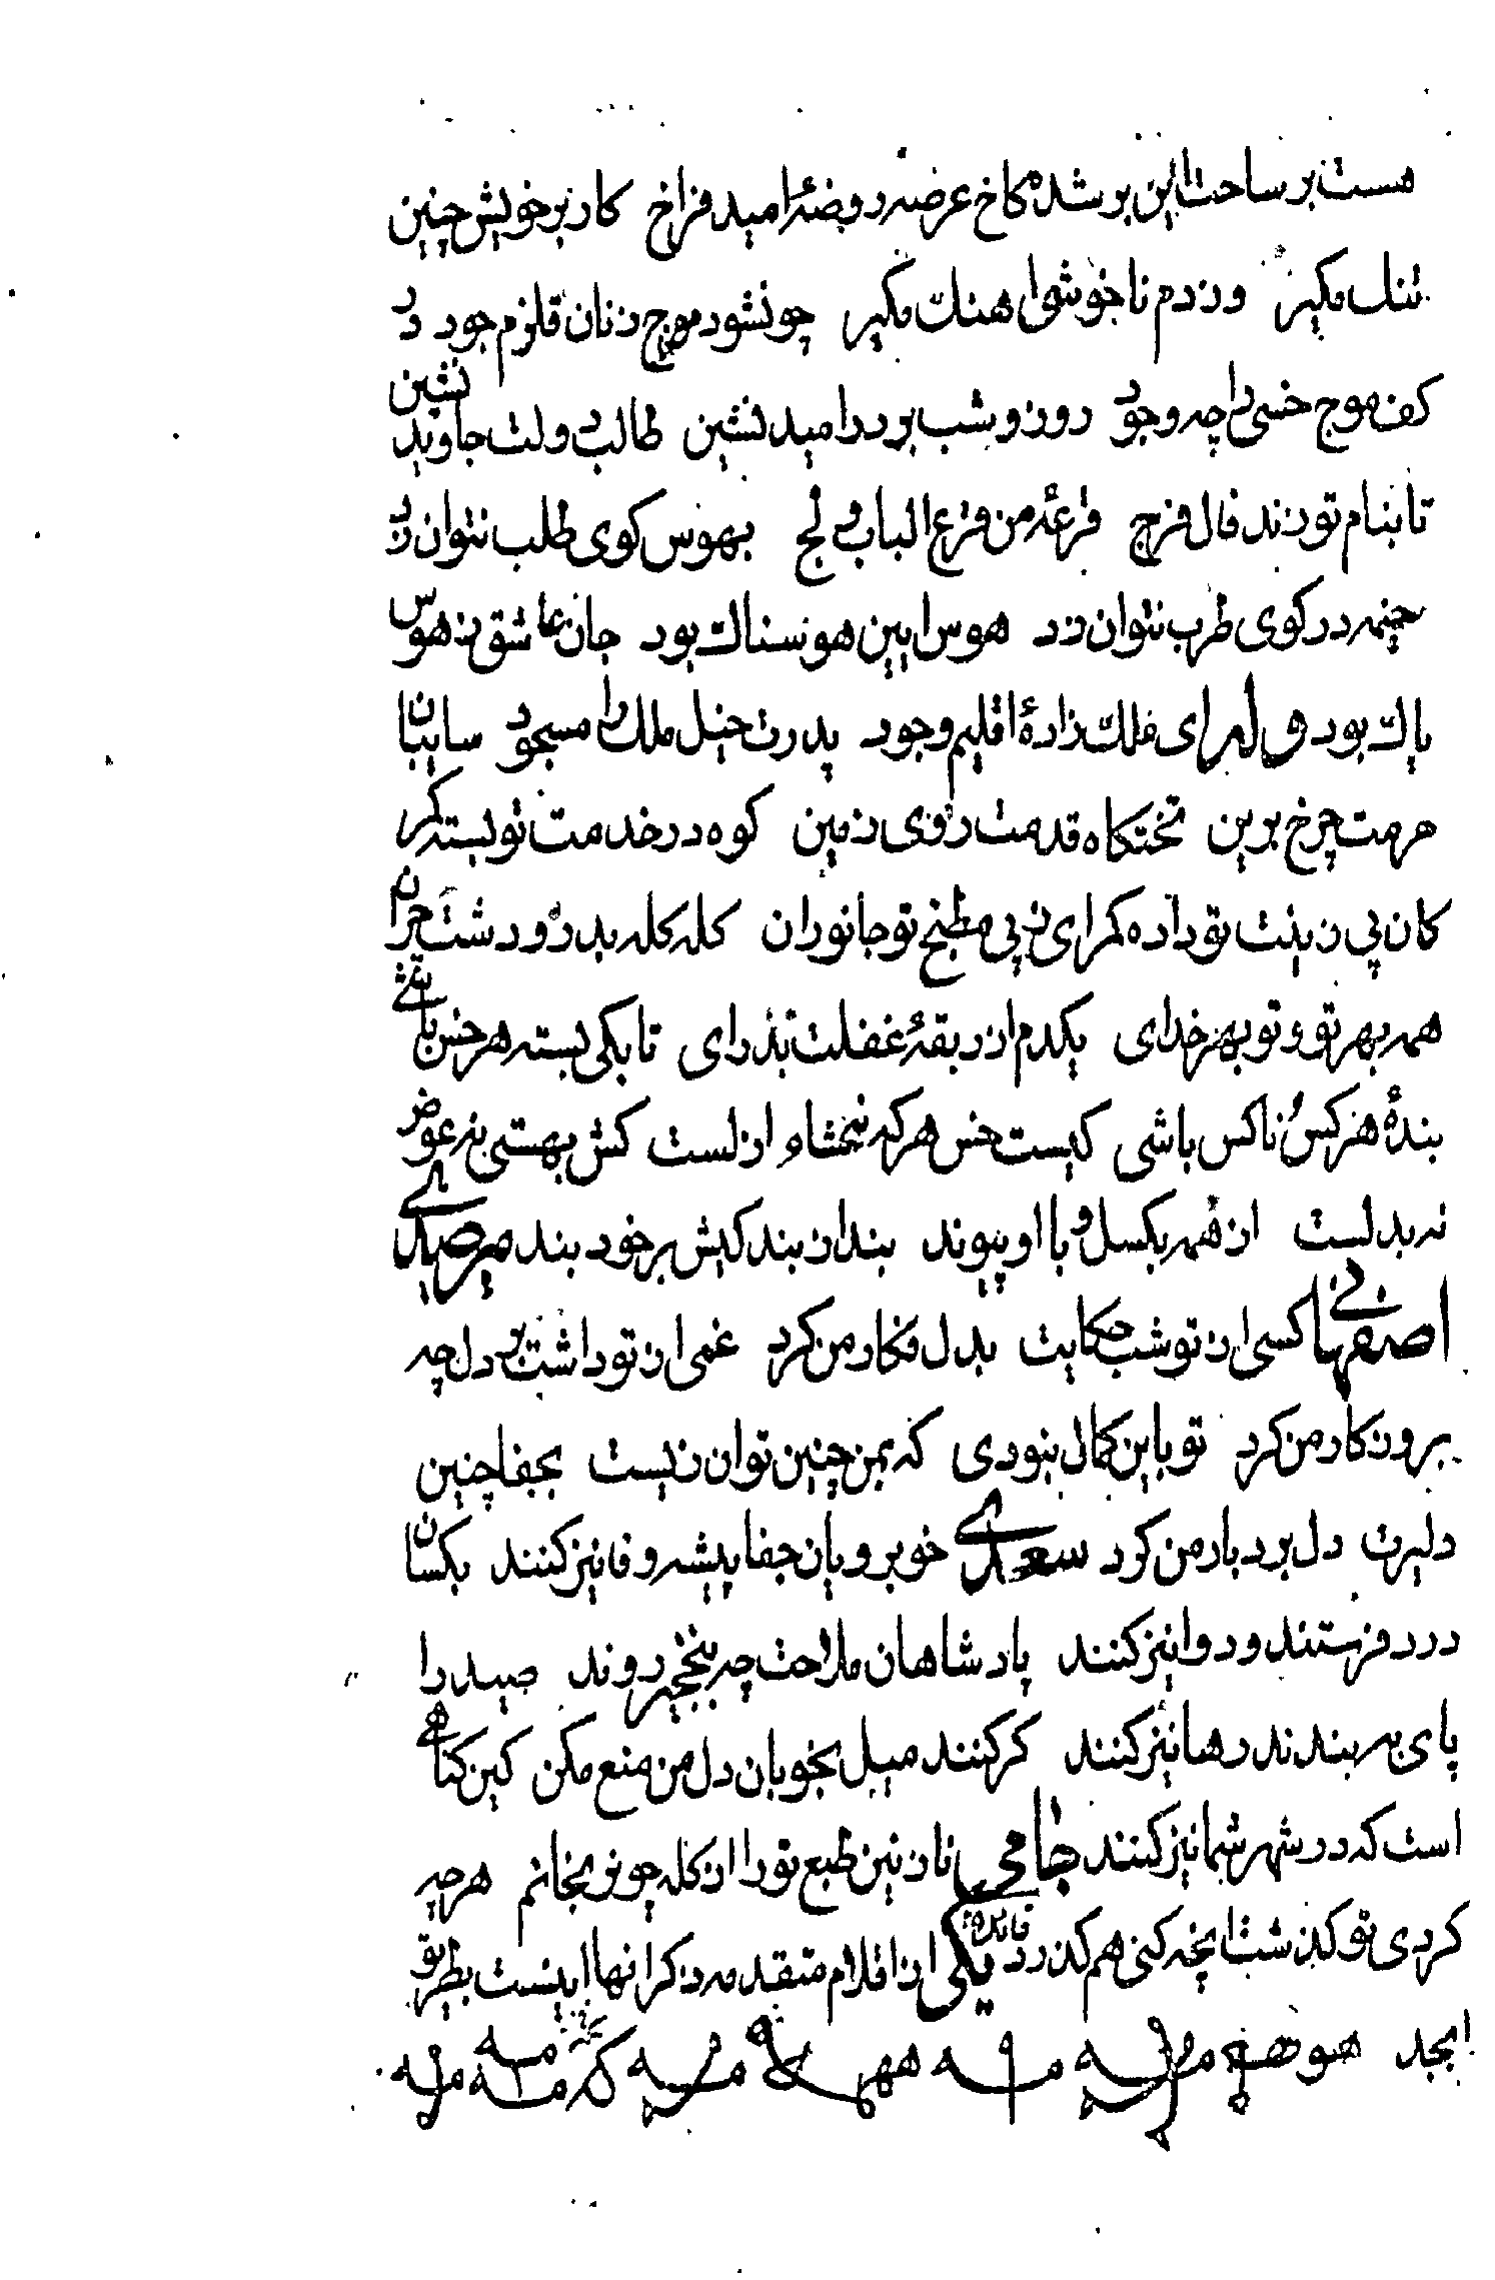 هست بر ساحت این بر شده کاخ عرضه روضهٔ امید فراخ کار بر خویش چنین
تنک مکیر وز دم ناخوشی اهنك مکیر چو نشود موج زنان قلزم جود در
کف موج خسی را چه وجود روز و شب بر در امید نشین طالب دولت جاوید نشین
تا بنام تو زند فال فرج قرعهٔ من قرع الباب و لج بهوس کوی طلب نتوان زد
خیمه در کوی طرب نتوان زد هوس ایین هوسناك بود جان عاشق ز هوس
پاك بود وله ای فلك زادهٔ اقلیم وجود پدرت خیل ملك را مسجود سایبان
حرمت چرخ برین تختکاه قدمت روی زمین کوه در خدمت تو بسته کمر
کان پی زینت تو داده کمر ای ز پی مطبخ تو جانوران کله کله بدر و دشت چران
همه بهر تو و تو بهر خدای یکدم از ربقهٔ غفلت بدر ای تا بکی بسته هر خس باشی
بندهٔ هر کس و ناکس باشی کیست خس هر که نه شاه ازلست کش بهستی نه عوض
نه بدلست از همه بکسل و با او پیوند بند از بند کیش بر خود بند میر صیدی
اصفهانی کسی از تو شب حکایت بدل فکار من کرد غمی از تو داشت بر دل چه
برون کار من کرد تو باین کمال بنودی که بمن چنین توان زیست بجفا چنین
دلیرت دل بردبار من کرد سعدی خوبرویان جفا پیشه وفا نیز کنند بکسان
درد فرستند و دوا نیز کنند پادشاهان ملاحت چو بنخجیر روند صید را
پای به بندند رها نیز کنند کر کنند میل بخوبان دل من منع مکن کین کناهی
است که در شهر شما نیز کنند جامی نازنین طبع تو را از کله چو نرنجانم هر چه
کردی تو کذشت انچه کنی هم کذرد فائده یکی از اقلام متقدمه ذکر انها اینست بطریق
ابجد